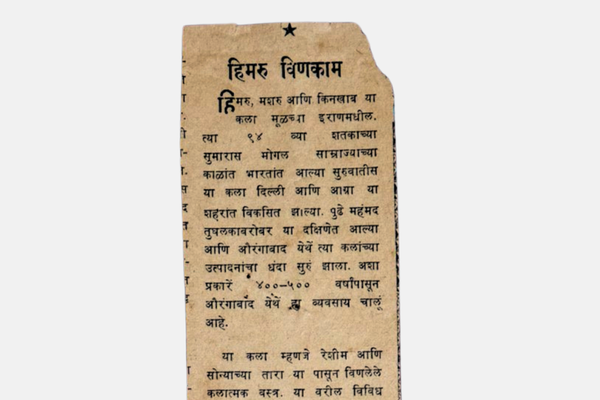 ★
हिमरु विणकाम
हिमरु, मशरु आणि किनखाब या
कला मूळच्या इराणमधील.
त्या १४ व्या शतकाच्या
सुमारास मोगल साम्राज्याच्या
काळांत भारतांत आल्या सुरुवातीस
या कला दिल्ली आणि आग्रा या
शहरांत विकसित झाल्या. पुढे महंमद
तुघलकाबरोबर या दक्षिणेत आल्या
आणि औरंगाबाद येथें त्या कलांच्या
उत्पादनांचा धंदा सुरुं झाला. अशा
प्रकारें ४००–५०० वर्षांपासून
औरंगाबाद येथें हा व्यवसाय चालूं
आहे.
या कला म्हणजे रेशीम आणि
सोन्याच्या तारा या पासून विणलेले
कलात्मक वस्त्र. या वरील विविध